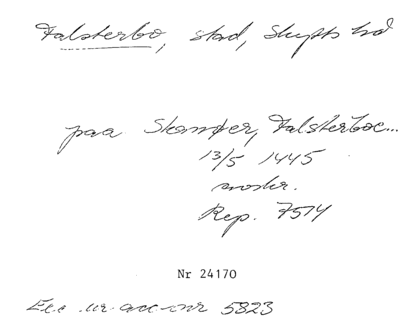 Falsterbo, stad, Skytts hd
paa Skanøer, Falsterboe...
13/5 1445
avskr.
Rep. 7514
Nr 24170
Ex. ur acc-nr 5823